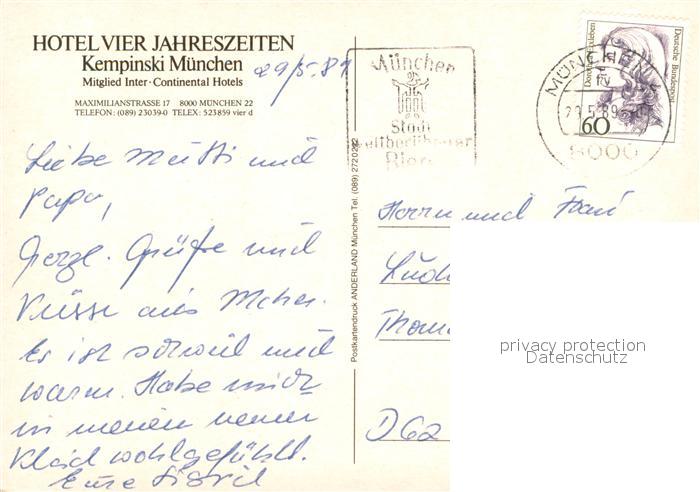 HOTEL VIER JAHRESZEITEN
Kempinski München
Mitglied Inter·Continental Hotels
MAXIMILIANSTRASSE 17 8000 MÜNCHEN 22
TELEFON: (089) 23039-0 TELEX: 523859 vier d
29/5.89
Liebe Mutti und
Papa,
Herzl. Grüße und
Küsse aus Mchen.
Es ist schwül und
warm. Habe mich
in meinen neuen
Kleid wohlgefühlt.
Eure Sigrid
Postkartendruck ANDERLAND München Tel. (089) 2720292
München
Stadt
weltberühmter
Biere
MÜNCHEN
29.5.89
8000
Deutsche Bundespost
60
Herrn und Frau
Ludw
Thom
D 62
privacy protection
Datenschutz